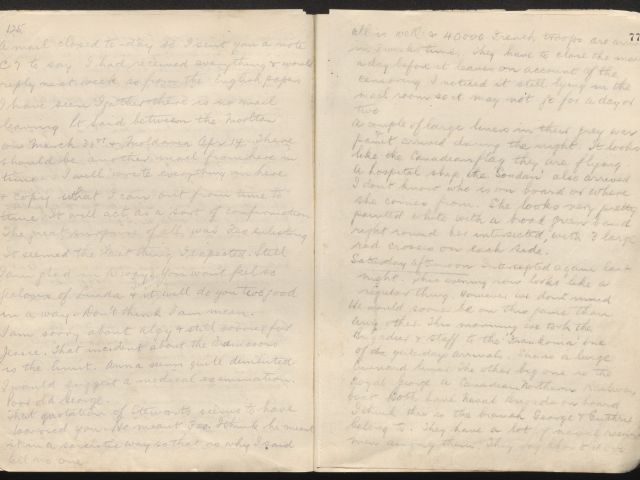 125
A mail closed to-day so I sent you a note
to say I had received everything & would
reply next week as from the English papers
I have seen further there is no mail
leaving. It said between the Morton
on March 31st & Moldavia Apr 14. There
should be another mail from here in
time. I will write everything on here
& copy what I can out from time to
time. It will act as a sort of confirmation
The great surprise of all was enlisting
It seemed the last thing I expected. Still
I am glad in a way. You won't feel so
jealous of Linda & it will do you two good
in a way. Don't think I am mean.
I am sorry about & still sorrier for
Jessie. That incident about the
is the limit. Anna seems quite demented
I would suggest a medical examination.
Poor old George.
That quotation of Stewarts seems to have
worried you. He meant I think he meant
it in a sarcastic way so that is why I said
tell no one
77
all is well & 40000 French troops are
in 2 weeks time. They have to close the mail
a day before it leaves on account of the
censoring. I noticed it still lying in the
mail room so it may not go for a day or
two
A couple of large liners in their grey war
paint arrived during the night. It looks
like the Canadian flag they are flying.
A hospital ship the Soudan also arrived
I don't know who is on board or where
she comes from. She looks very pretty
painted white with a broad green band
right round her intersected with 3 large
red crosses on each side.
Saturday afternoon Interrupted again last
night. This evening now looks like a
regular thing. However we don't mind
We would sooner be on this game than
any other. This morning we took the
Brigadier & Staff to the Franconia one
of the yesterday arrivals. She is a large
Cunard liner. The other big one is the
Royal George a Canadian Northern Railway
boat. Both have Naval Brigade on board
I think this is the branch George & Guthrie
belong to. They have a lot of
men among them. They say